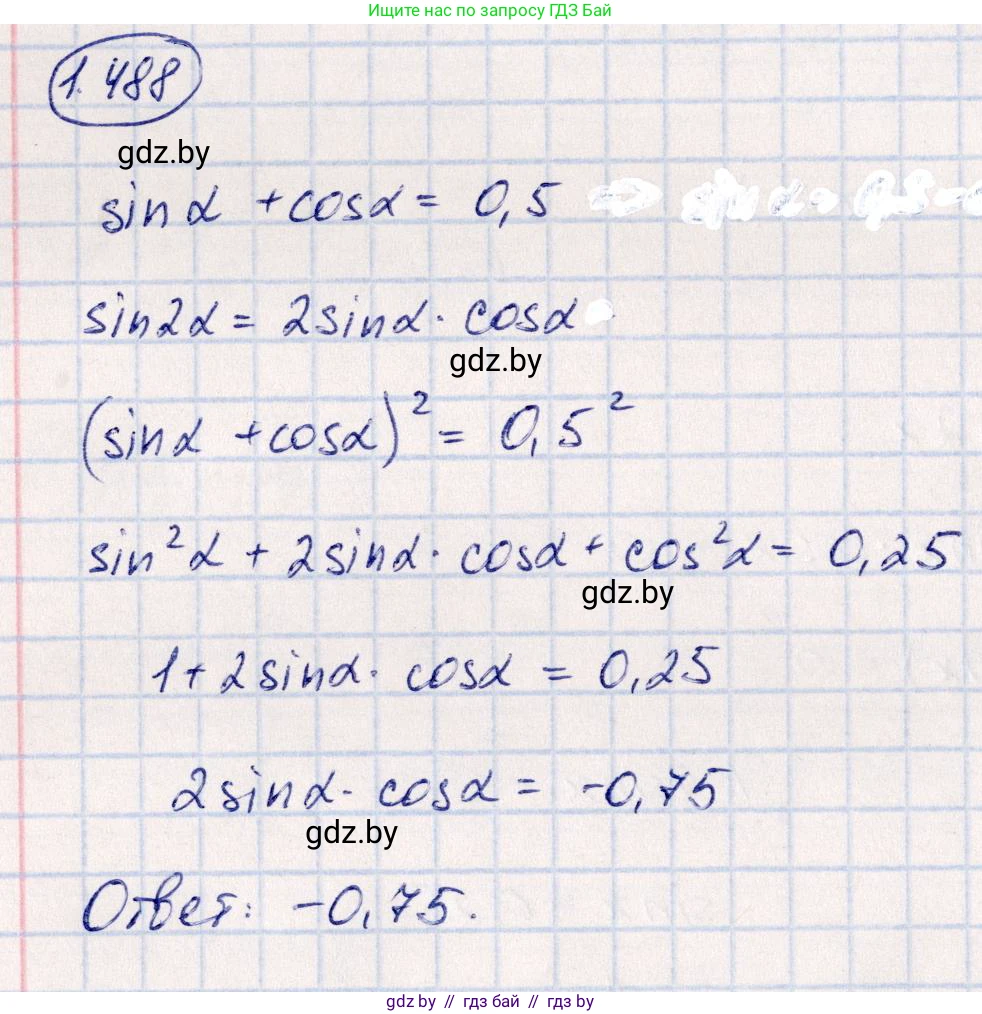 Ищите нас по запросу ГДЗ Бай
1.488
gdz.by
sinα + cosα = 0,5
sin2α = 2sinα · cosα
gdz.by
(sinα + cosα)² = 0,5²
sin²α + 2sinα · cosα + cos²α = 0,25
gdz.by
1 + 2sinα · cosα = 0,25
2sinα · cosα = -0,75
gdz.by
Ответ: -0,75.
gdz.by // гдз бай // гдз by